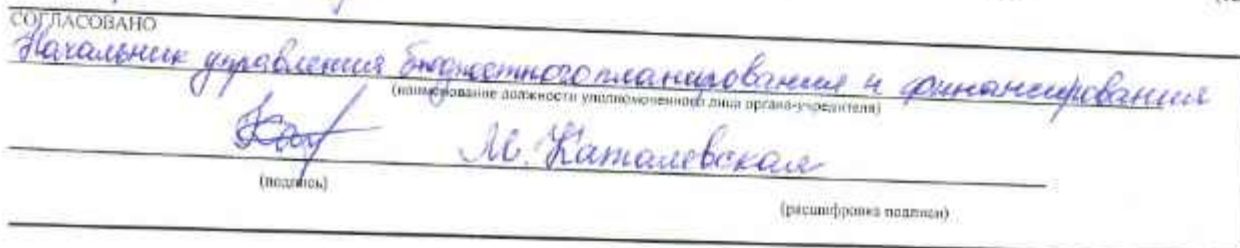 СОГЛАСОВАНО
Начальник управления бюджетного планирования и финансирования
(наименование должности уполномоченного лица органа-учредителя)
М. Каталевская
(подпись)
(расшифровка подписи)